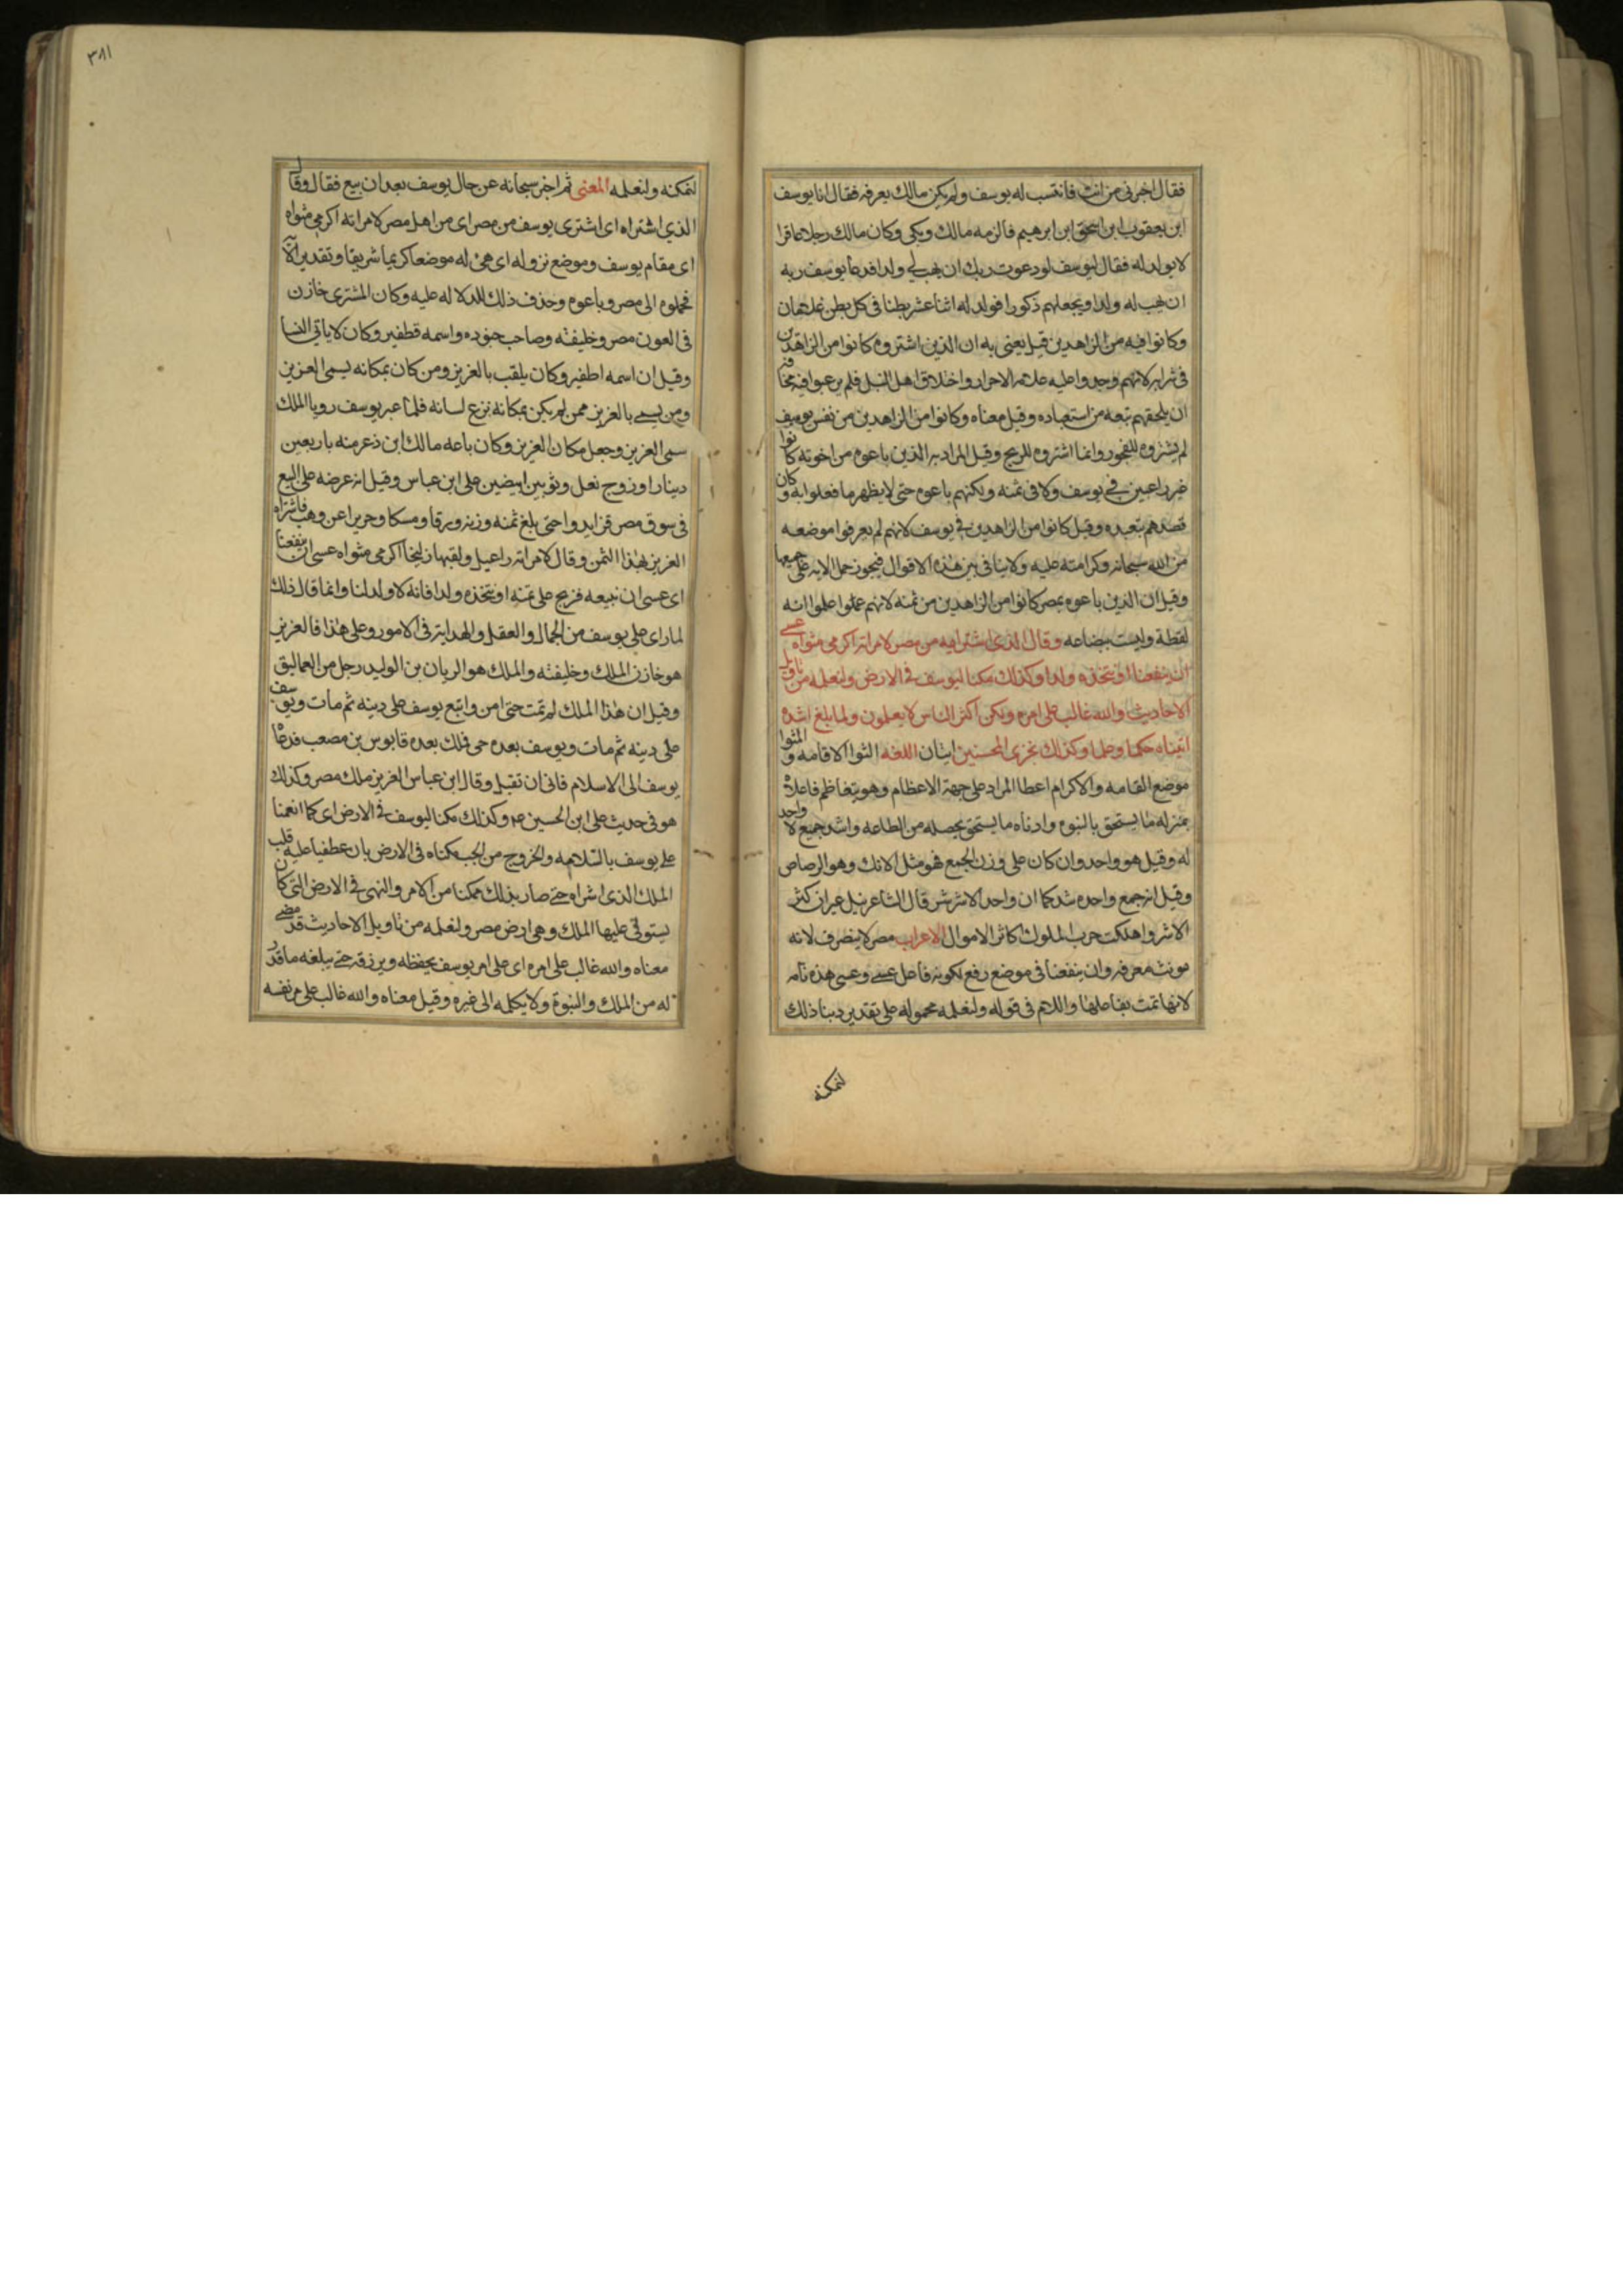 فقال اخبرنی من انت فانتسب له یوسف ولم یکن مالک یعرفه فقال انا یوسف
ابن یعقوب ابن اسحق ابن ابرهیم فالزمه مالک وبکی وکان مالک رجلا عاقرا
لا یولد له فقال لیوسف لو دعوت ربک ان یهب لی ولدا فدعا یوسف ربه
ان یهب له ولدا ویجعلهم ذکورا فولد له اثنا عشر بطنا فی کل بطن غلامان
وکانوا فیه من الزاهدین قیل یعنی به ان الذین اشتروه کانوا من الزاهدین
فی شرایه لانهم وجدوا علیه علامة الاحرار واخلاق اهل النبل فلم یرغبوا فیه مخافة
ان یلحقهم تبعه من استعباده وقیل معناه وکانوا من الزاهدین من نفس یوسف
لم یشتروه للفجور وانما اشتروه للربح وقیل المراد به الذین باعوه من اخوته کانوا
غیر راغبین فی یوسف ولا فی ثمنه ولکنهم باعوه حتی لا یظهر ما فعلوا به وکان
قصدهم تبعیده وقیل کانوا من الزاهدین فی یوسف لانهم لم یعرفوا موضعه
من الله سبحانه وکرامته علیه ولا ینافی بین هذه الاقوال فیجوز حمل الایه علی جمیعها
وقیل ان الذین باعوه بمصر کانوا من الزاهدین من ثمنه لانهم عملوا علموا انه
لقطة ولیست بضاعه وقال الذی اشتریه من مصر لامراته اکرمی مثواه عسی
ان ینفعنا او نتخذه ولدا وکذلک مکنا لیوسف فی الارض ولنعلمه من تاویل
الاحادیث والله غالب علی امره ولکن اکثر الناس لا یعلمون ولما بلغ اشده
اتیناه حکما وعلما وکذلک نجزی المحسنین ایتان اللغه الثوا الاقامه والمثوا
موضع القامه والاکرام اعطا المراد علی جهة الاعظام وهو یتعاظم فاعلاه
بمنزله ما یستحق بالنبوه وادناه ما یستحق بخصله من الطاعه واشد جمیع لا واحد
له وقیل هو واحد وان کان علی وزن الجمع فهو مثل الانک وهو الرصاص
وقیل انه جمع واحده شد کما ان واحد الاشر شر قال الشاعر نیل غیر ان کثر
الاشر واهلکت حرب الملوک اکاثر الاموال الاعراب مصر لا ینصرف لانه
مونث معرفه وان ینفعنا فی موضع رفع لکونه فاعل عسی وعسی هذه تامه
لانها تمت بفاعلها واللام فی قوله ولنعلمه محموله علی تقدیر دبنا ذلک
لنمکنه
٣٨١
لنمکنه ولنعلمه المعنی ثم اخبر سبحانه عن حال یوسف بعد ان بیع فقال وقال
الذی اشتراه ای اشتری یوسف من مصر ای من اهل مصر لامراته اکرمی مثواه
ای مقام یوسف وموضع نزوله ای هیّ له موضعا کریما شریفا وتقدیر الآیه
فحملوه الی مصر وباعوه وحذف ذلک للدلاله علیه وکان المشتری خازن
فی العون مصر وخلیفته وصاحب جنوده واسمه قطفیر وکان لا یاتی النسا
وقیل ان اسمه اطفیر وکان یلقب بالعزیز ومن کان بمکانه یسمی العزیز
ومن یسمی بالعزیز ممن لم یکن بمکانه نزع لسانه فلما عبر یوسف رویا الملک
سمی العزیز وجعل مکان العزیز وکان باعه مالک ابن ذعر منه باربعین
دینارا وزوج نعل وثوبین ابیضین علی ابن عباس وقیل انه عرضه علی البیع
فی سوق مصر فزایدوا حتی بلغ ثمنه وزنه ورقا ومسکا وحریرا عن وهب فاشتراه
العزیز بهذا الثمن وقال لامراته راعیل ولقبها زلیخا اکرمی مثواه عسی ان ینفعنا
ای عسی ان نبیعه فربح علی ثمنه او نتخذه ولدا فانه لا ولد لنا وانما قال ذلک
لما رای علی یوسف من الجمال والعقل والهدایة فی الامور وعلی هذا فالعزیز
هو خازن الملک وخلیفته والملک هو الریان بن الولید رجل من العمالیق
وقیل ان هذا الملک لم تمت حتی امن واتبع یوسف علی دینه ثم مات ویوسف
علی دینه ثم مات ویوسف بعده حی فملک بعده قابوس بن مصعب فدعا
یوسف الی الاسلام فابی ان تقبل وقال ابن عباس العزیز ملک مصر وکذلک
هو فی حدیث علی ابن الحسین عم وکذلک مکنا لیوسف فی الارض ای کما انعمنا
علی یوسف بالسلامه والخروج من الجب مکناه فی الارض بان عطفنا علیه قلب
الملک الذی اشراه حتی صار بذلک ممکنا من الامر والنهی فی الارض التی کان
یستولی علیها الملک وهی ارض مصر ولنعلمه من تاویل الاحادیث قد مضی
معناه والله غالب علی امره ای علی امر یوسف یحفظه ویرزقه حتی یبلغه ما قدر
له من الملک والنبوة ولا یکلمه الی غیره وقیل معناه والله غالب علی من نفسه